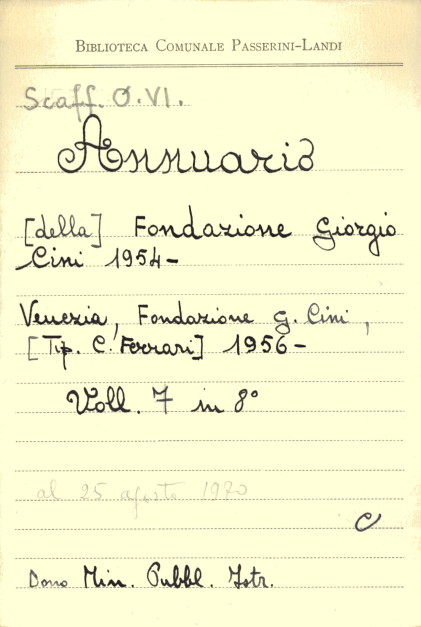 BIBLIOTECA COMUNALE PASSERINI-LANDI
Scaff. O.VI.
Annuario
[della] Fondazione Giorgio
Cini 1954-
Venezia, Fondazione G. Cini,
[Tip. C. Ferrari] 1956-
Voll. 7 in 8°
al 25 agosto 1970
C
Dono Min. Pubbl. Istr.